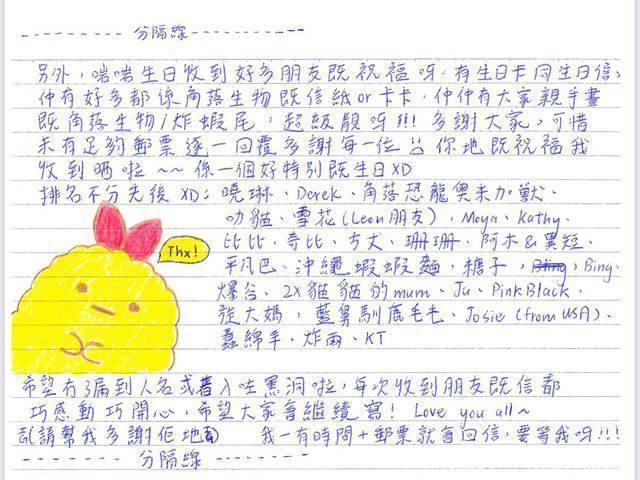 --------- 分隔線 -----------
另外，啱啱生日收到好多朋友既祝福呀，有生日卡同生日信、
仲有好多都係角落生物既信紙or卡卡，仲仲有大家親手畫
既角落生物/炸蝦尾，超級靚呀!!! 多謝大家，可惜
未有足夠郵票逐一回覆多謝每一位 你地既祝福我
收到晒啦~~係一個好特別既生日XD
排名不分先後 XD: 曉琳、Derek、角落恐龍奧未加獸、
叻貓、雪花(Leon朋友)，Moya、Kathy、
比比、奇比、方丈、珊珊、阿木&異短、
平凡巴、沖繩蝦蝦麵，糖子，Bing、
爆谷、2X貓貓的mum、Ju、PinkBlack、
強大媽，藍舅馴鹿毛毛、Josie (from USA)、
蠢綿羊、炸雨、KT
Thx!
希望冇漏到人名或者入咗黑洞啦，每次收到朋友既信都
巧感動巧開心，希望大家會繼續寫! Love you all~
請幫我多謝佢地 我一有時間+郵票就會回信，要等我呀!!!
-------- 分隔線 --------